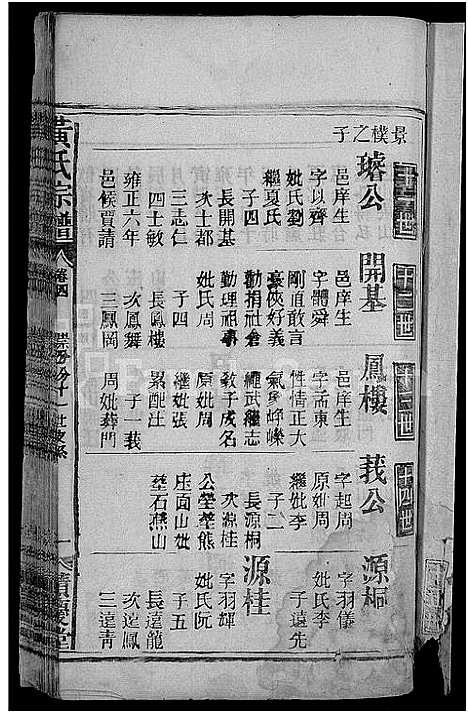 景樸之子
十一世
十二世
十三世
十四世
璿公
邑庠生
字以齊
妣氏劉
繼夏氏
子四
長開基
次士都
三志仁
四士敏
雍正六年
邑候賈請
開基
邑庠生
字體舜
剛直敢言
豪俠好義
勸捐社倉
勤理祖事
妣氏周
子四
長鳳樓
次鳳舞
三鳳岡
鳳樓
邑庠生
字孟東
性情正大
氣象崢嶸
繩武繼志
教子成名
原妣周
繼妣張
累配汪
子一莪
周妣葬門
莪公
字起周
原妣周
繼妣李
子二
長源桐
次源桂
公塋葬熊
庄面山妣
塋石燕山
源桐
字羽儀
妣氏李
子遠先
源桂
字羽輝
妣氏阮
子五
長遠龍
次遠鳳
三遠青
黃氏宗譜
卷四